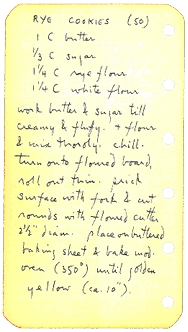 RYE COOKIES (50)
1 C butter
1/3 C sugar
1 1/4 C rye flour
1 1/4 C white flour
work butter & sugar till
creamy & fluffy. + flour
& mix thoroly. chill.
turn onto floured board,
roll out thin. prick
surface with fork & cut
rounds with floured cutter
2 1/2" diam. place on buttered
baking sheet & bake mod.
oven (350°) until golden
yellow (ca. 10").